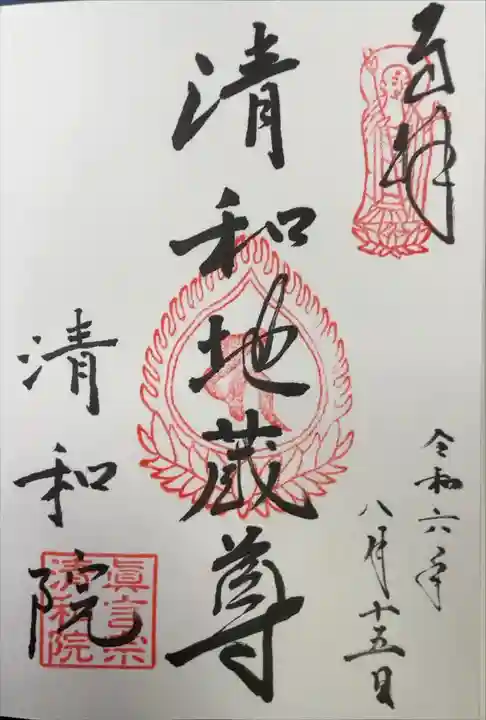 奉拝
令和六年
八月十五日
清和地蔵尊
清和院
眞言宗
清和院